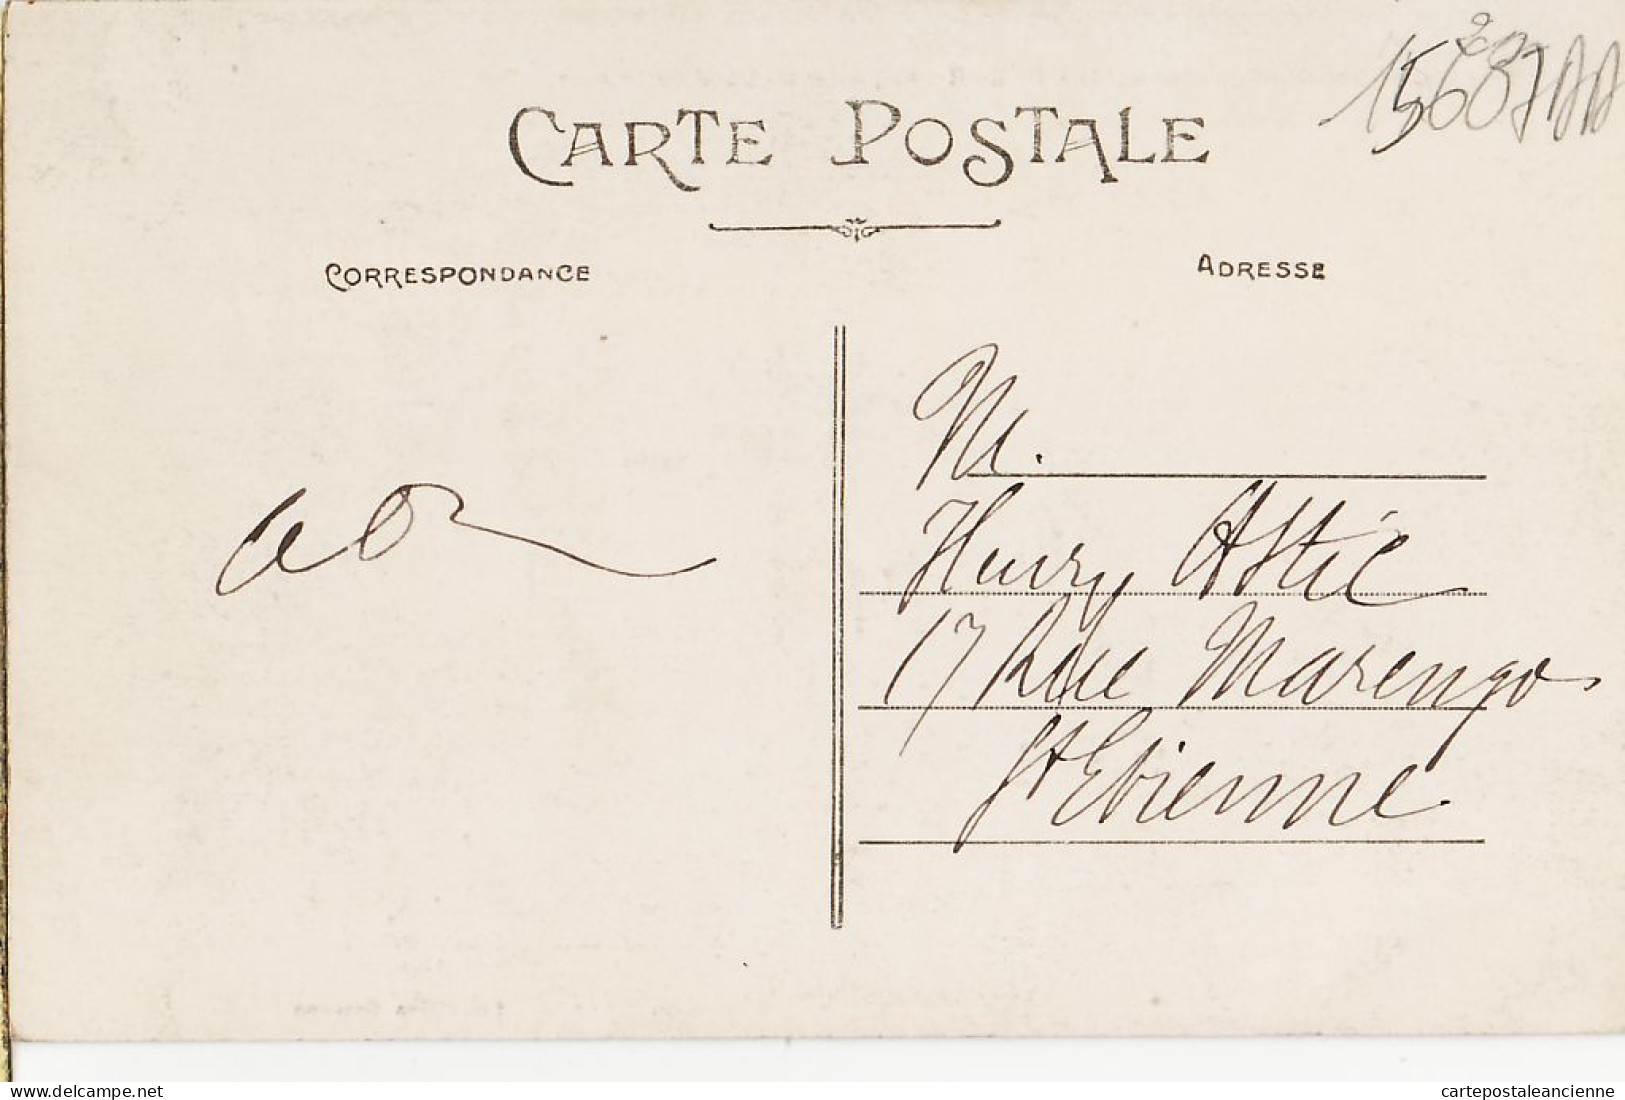 CARTE POSTALE
CORRESPONDANCE
ADRESSE
M.
Henry Attié
17 Rue Marengo
St Etienne
delcampe.net
cartepostaleancienne